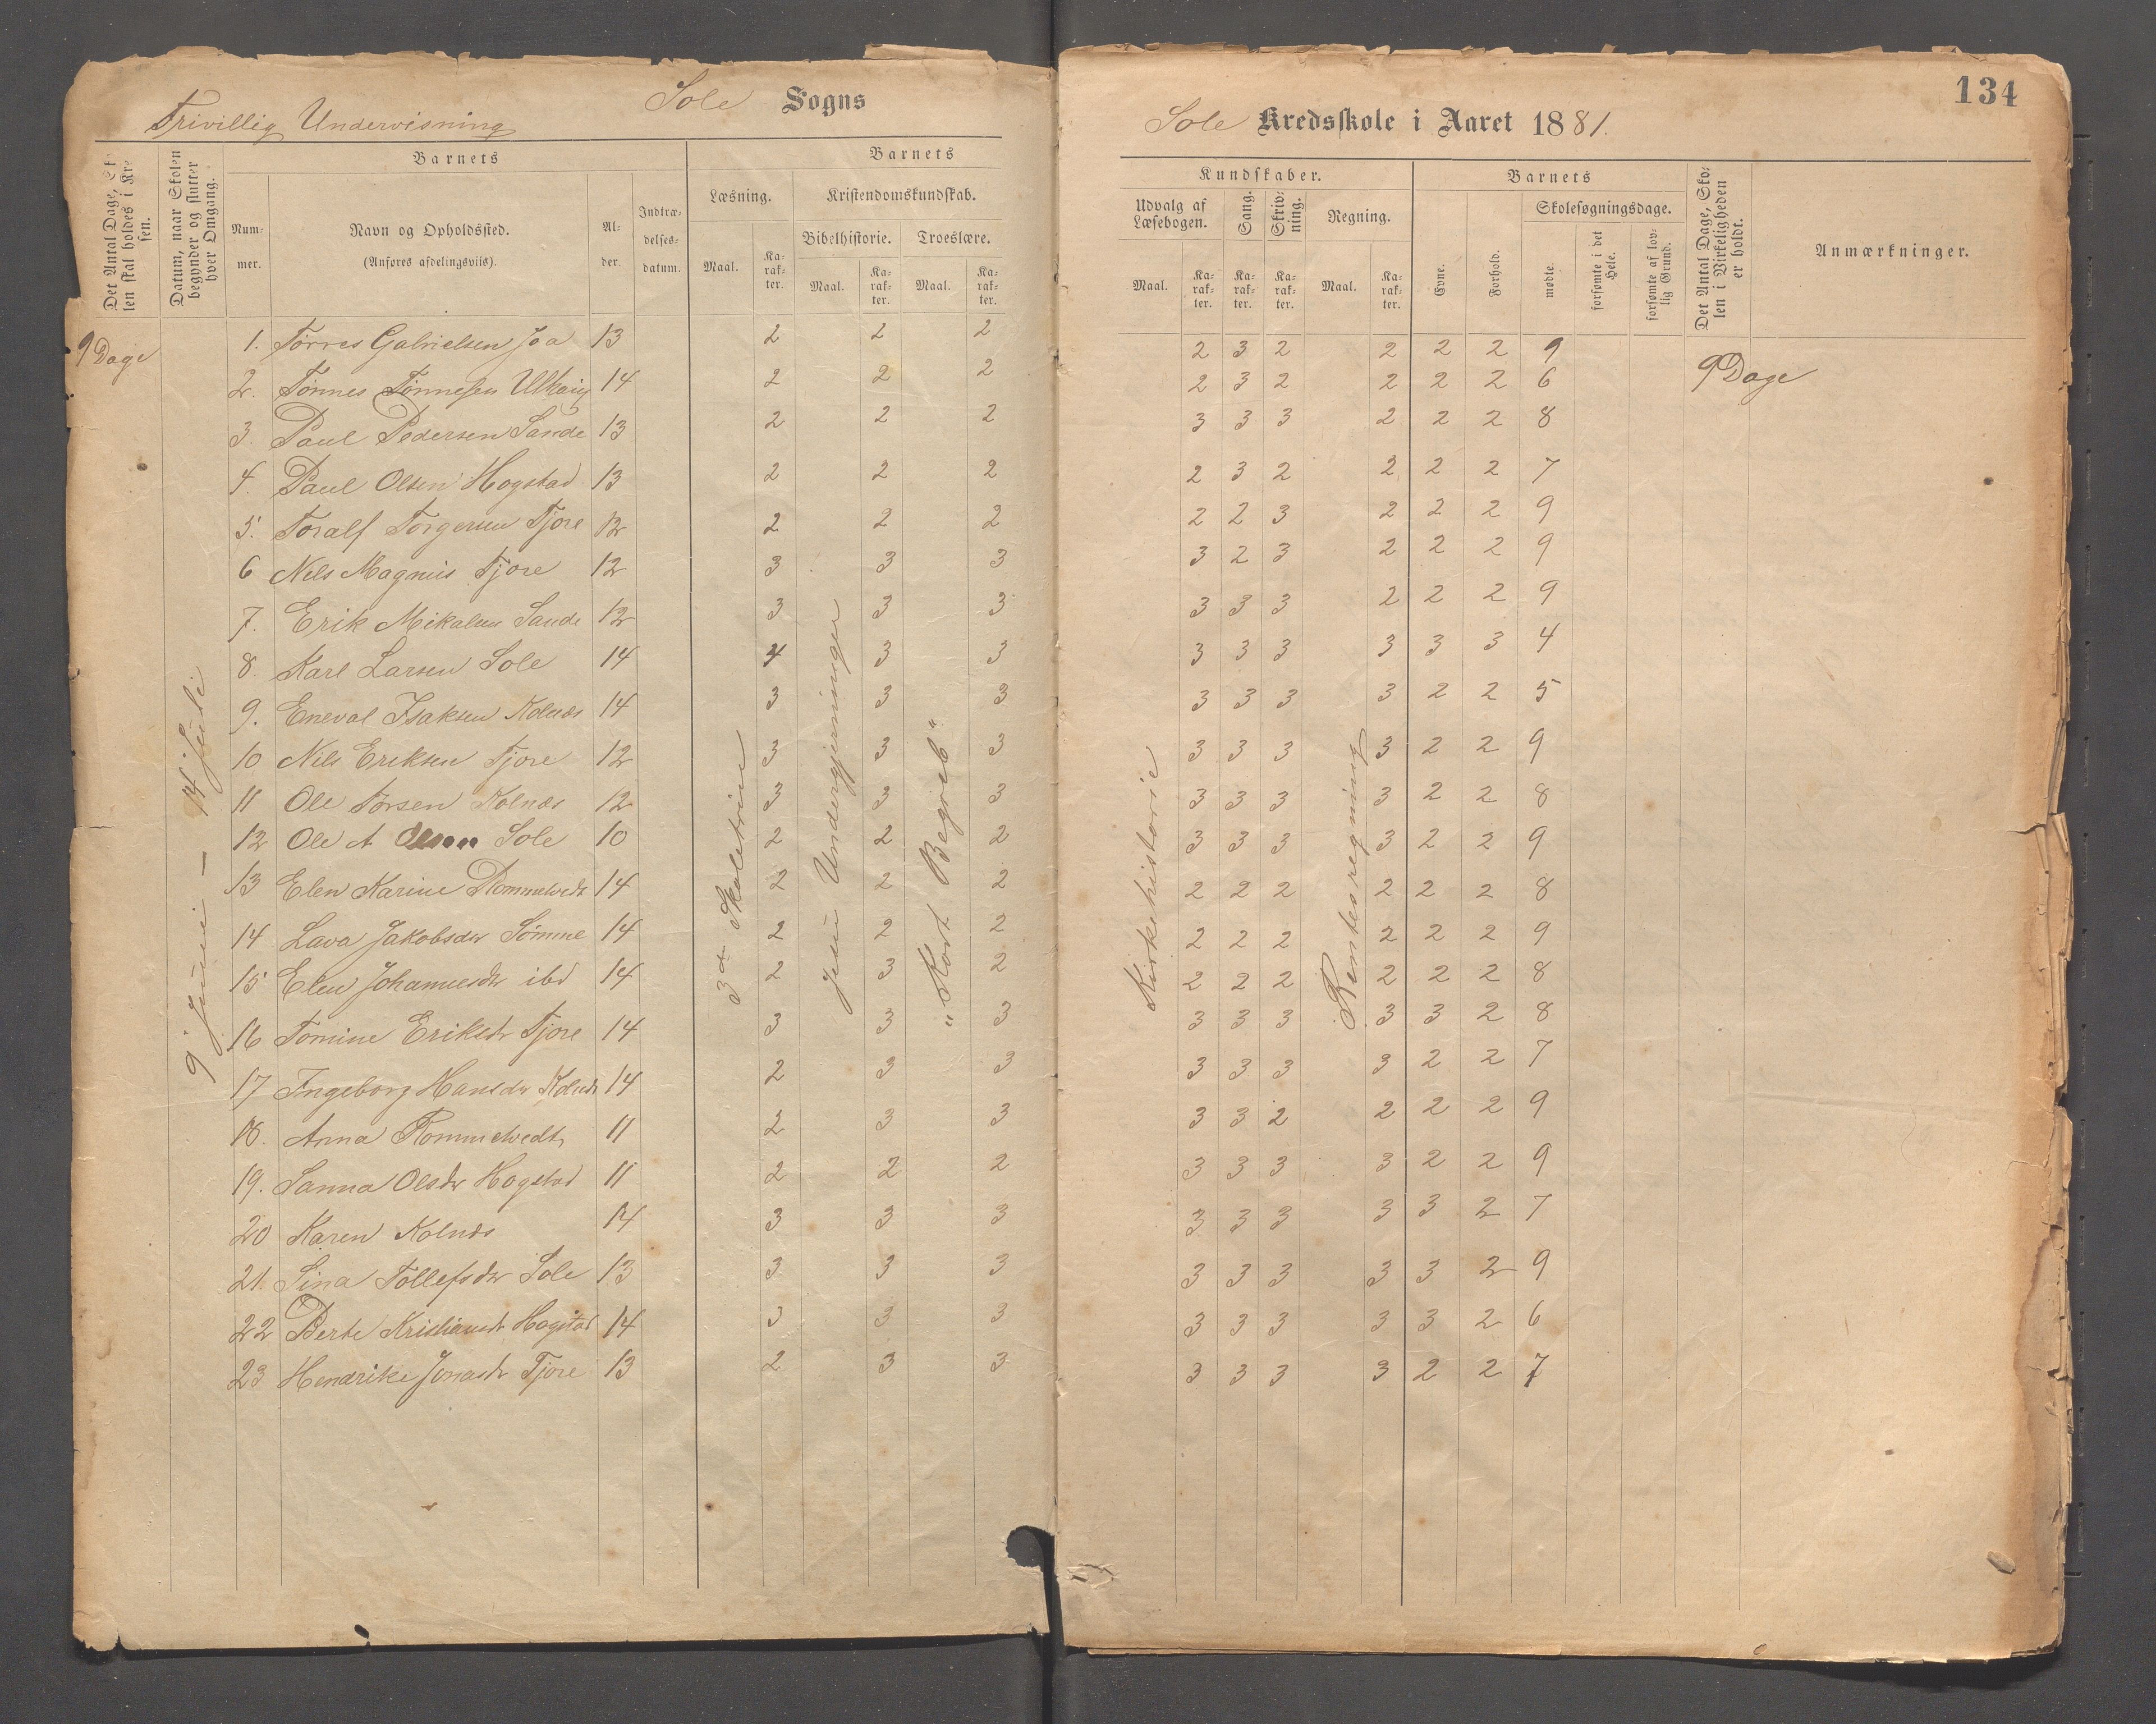 134
Sole Sogns
Frivillig Undervisning
Sole Kredsskole i Aaret 1881.
Det Antal Dage, Sko-
len skal holdes i Kre-
sen.
Datum, naar Skolen
begynder og slutter
hver Omgang.
Barnets
Num-
mer.
Navn og Opholdssted.
(Anføres afdelingsviis).
Al-
der.
Indtræ-
delses-
datum.
Barnets
Læsning.
Maal.
Ka-
rak-
ter.
Kristendomskundskab.
Bibelhistorie.
Maal.
Ka-
rak-
ter.
Troeslære.
Maal.
Ka-
rak-
ter.
Kundskaber.
Udvalg af
Læsebogen.
Maal.
Ka-
rak-
ter.
Sang.
Ka-
rak-
ter.
Skriv-
ning.
Ka-
rak-
ter.
Regning.
Maal.
Ka-
rak-
ter.
Barnets
Evne.
Forhold.
Skolesøgningsdage.
mødte.
forsømte i det
Hele.
forsømte af lov-
lig Grund.
Det Antal Dage, Sko-
len i Virkeligheden
er holdt.
Anmærkninger.
9 Dage
9 Juni – 14 Juli
3die Skoletrin
Jesu Undergjerninger
"Kort Begreb"
Kirkehistorie
Rentesregning
9 Dage
1. Torres Gabrielsen Joa 13 2 2 2 2 3 2 2 2 2 9
2. Tønnes Tønnesen 14 2 2 2 2 3 2 2 2 2 6
3. Paul Pedersen Sande 13 2 2 2 3 3 3 2 2 2 8
4. Paul Olsen Hogstad 13 2 2 2 2 3 2 2 2 2 7
5. Toralf Torgersen Tjore 12 2 2 2 2 2 3 2 2 2 9
6 Nils Magnus Tjore 12 3 3 3 3 2 3 2 2 2 9
7. Erik Mikalsen Sande 12 3 3 3 3 3 3 2 2 2 9
8. Karl Larsen Sole 14 4 3 3 3 3 3 3 3 3 4
9. Eneval Isaksen Kolnæs 14 3 3 3 3 3 3 3 2 2 5
10 Nils Eriksen Tjore 12 3 3 3 3 3 3 3 2 2 9
11 Ole Torsen Kolnæs 12 3 3 3 3 3 3 3 2 2 8
12 Ole A Sole 10 2 2 2 3 3 3 3 2 2 9
13 Elen Karine Rommetvedt 14 2 2 2 2 2 2 2 2 2 8
14 Lava Jakobsdr Sømme 14 2 2 2 2 2 2 2 2 2 9
15 Elen Johannesdr ibd 14 2 3 2 2 2 2 2 2 2 8
16 Tomine Eriksdr Tjore 14 3 3 3 3 3 3 3 3 2 8
17 Ingeborg Hansdr Kolnæs 14 2 3 3 3 3 3 3 2 2 7
18. Anna Rommetvedt 11 2 3 3 3 3 2 2 2 2 9
19. Sanna Olsdr Hogstad 11 2 2 2 3 3 3 3 2 2 9
20 Karen Kolnæs 14 3 3 3 3 3 3 3 3 2 7
21. Sina Tollefsdr Sole 13 3 3 3 3 3 3 3 3 2 9
22 Berte Kristiansdr Hogstad 14 3 3 3 3 3 3 3 3 2 6
23 Hendrike Jonasdr Tjore 13 2 3 3 3 3 3 3 2 2 7